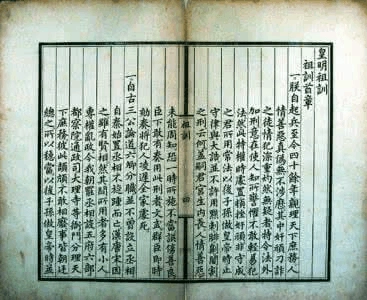 皇明祖訓
祖訓首章
一朕自起兵至今四十餘年親理天下庶務人
情善惡真偽無不涉歷其中奸頑刁詐
之徒情犯深重灼然無疑者特令法外
加刑意在使人知所警懼不敢輕易犯
法然此特權時處置頓挫奸頑非守成
之君所用常法以後子孫做皇帝時止
守律與大誥並不許用黥刺剕劓閹割
之刑云何蓋嗣君宮生內長人情善惡
祖訓 四
未能周知恐一時所施不當誤傷善良
臣下敢有奏用此刑者文武羣臣即時
劾奏將犯人凌遲全家處死
一自古三公論道六卿分職並不曾設立丞相
自秦始置丞相不旋踵而亡漢唐宋因
之雖有賢相然其間所用者多有小人
專權亂政今我朝罷丞相設五府六部
都察院通政司大理寺等衙門分理天
下庶務彼此頡頏不敢相壓事皆朝廷
總之所以穩當以後子孫做皇帝時並